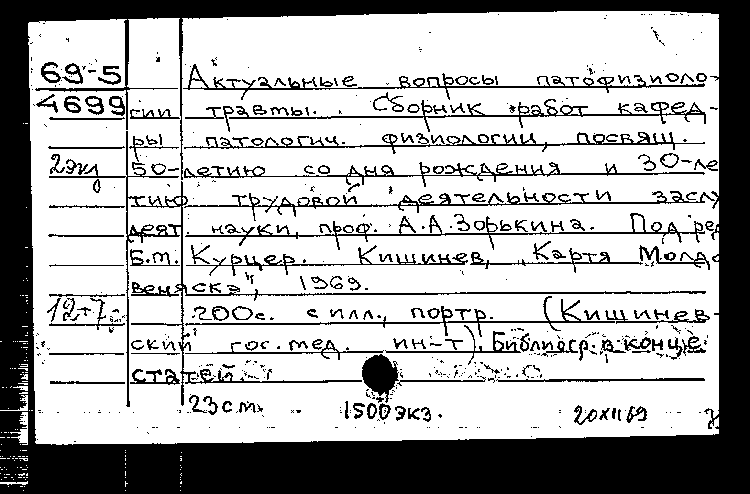 69-5 Актуальные вопросы патофизиоло-
4699 гии травмы. Сборник работ кафед-
ры патологич. физиологии, посвящ.
2экз 50-летию со дня рождения и 30-ле
тию трудовой деятельности заслу
деят. науки, проф. А.А.Зорькина. Под ре
Б.М. Курцер. Кишинев, "Картя Молдо
веняскэ", 1969.
200с. с илл., портр. (Кишинев-
ский гос. мед. ин-т). Библиогр. в конце
статей.
23см. 1500экз. 20XII69